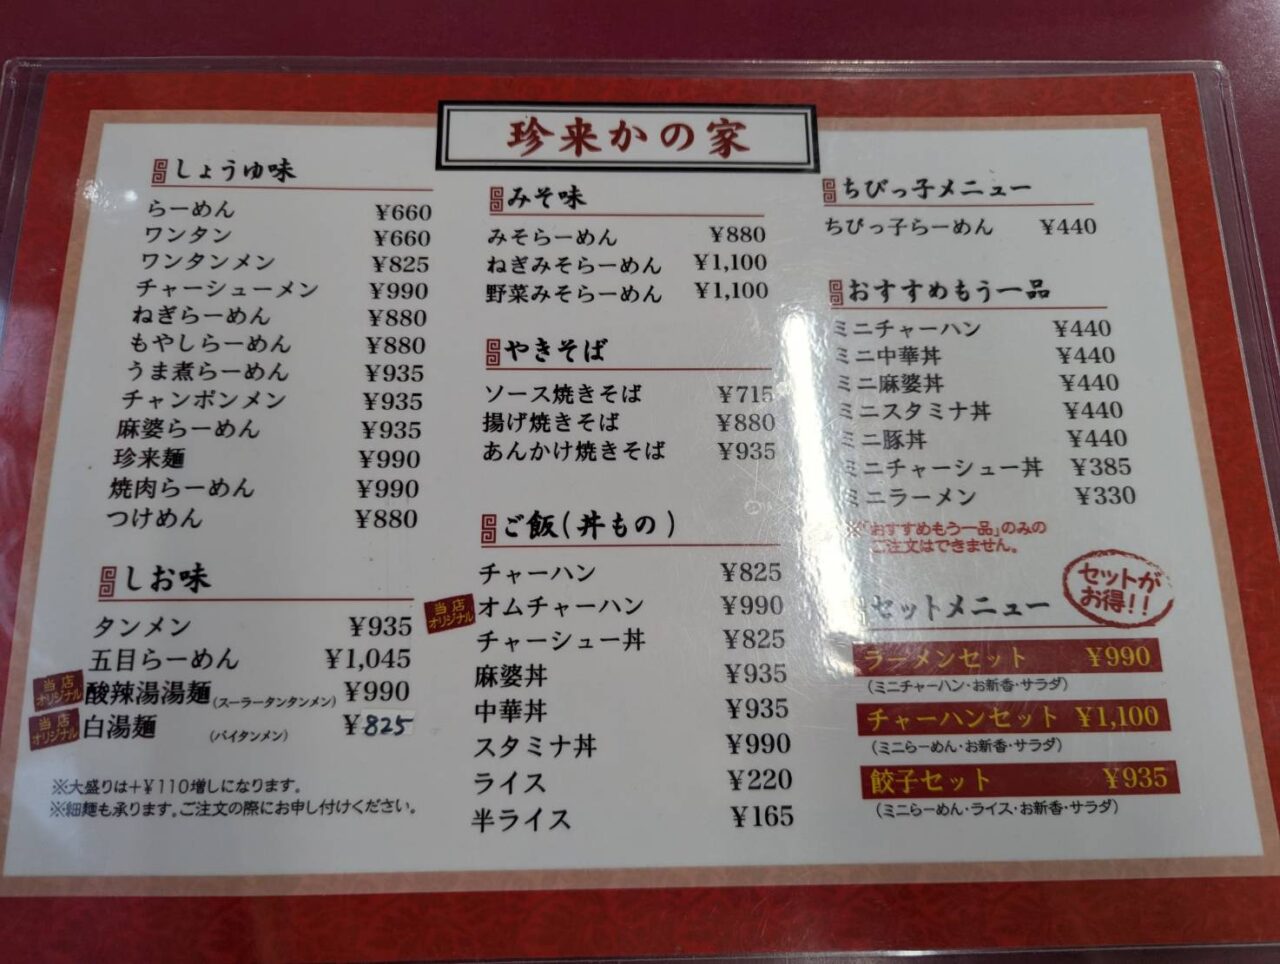 珍来かの家
しょうゆ味
らーめん ¥660
ワンタン ¥660
ワンタンメン ¥825
チャーシューメン ¥990
ねぎらーめん ¥880
もやしらーめん ¥880
うま煮らーめん ¥935
チャンポンメン ¥935
麻婆らーめん ¥935
珍来麺 ¥990
焼肉らーめん ¥990
つけめん ¥880
しお味
タンメン ¥935
五目らーめん ¥1,045
当店オリジナル 酸辣湯湯麺(スーラータンタンメン) ¥990
当店オリジナル 白湯麺 (パイタンメン) ¥825
※大盛りは+¥110増しになります。
※細麺も承ります。ご注文の際にお申し付けください。
みそ味
みそらーめん ¥880
ねぎみそらーめん ¥1,100
野菜みそらーめん ¥1,100
やきそば
ソース焼きそば ¥715
揚げ焼きそば ¥880
あんかけ焼きそば ¥935
ご飯(丼もの)
チャーハン ¥825
当店オリジナル オムチャーハン ¥990
チャーシュー丼 ¥825
麻婆丼 ¥935
中華丼 ¥935
スタミナ丼 ¥990
ライス ¥220
半ライス ¥165
ちびっ子メニュー
ちびっ子らーめん ¥440
おすすめもう一品
ミニチャーハン ¥440
ミニ中華丼 ¥440
ミニ麻婆丼 ¥440
ミニスタミナ丼 ¥440
ミニ豚丼 ¥440
ミニチャーシュー丼 ¥385
ミニラーメン ¥330
※「おすすめもう一品」のみの
ご注文はできません。
セットが
お得!!
セットメニュー
ラーメンセット ¥990
(ミニチャーハン・お新香・サラダ)
チャーハンセット ¥1,100
(ミニらーめん・お新香・サラダ)
餃子セット ¥935
(ミニらーめん・ライス・お新香・サラダ)